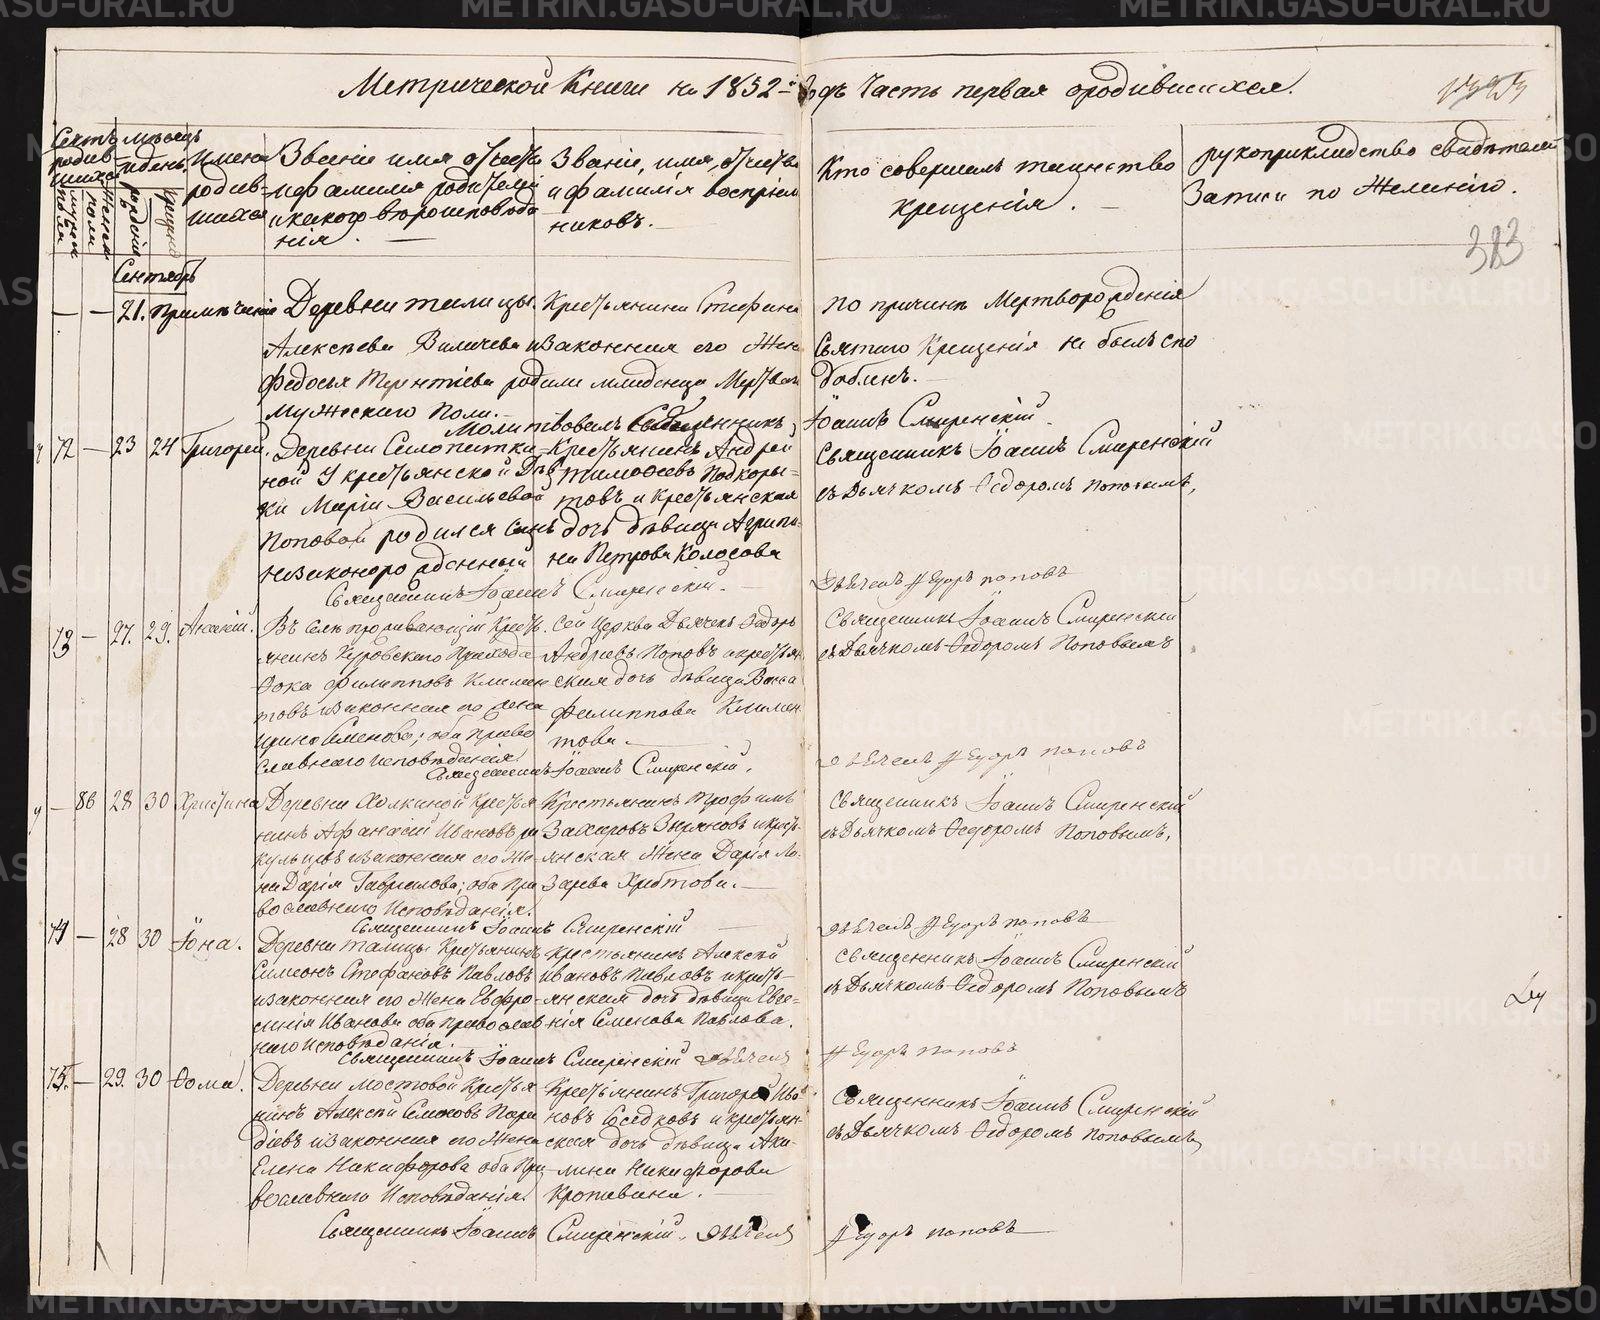 Метрической Книги на 1852 й Годъ Часть первая ородившихся.
383
Счетъ родившихся
мужеска пола
женска пола
Мѣсяцъ и день.
рожденія
крещенія
Имена родившихся
Званіе имя отчество и фамилія родителей и какого вѣроисповѣданія.
Званіе, имя, отчество и фамилія воспріемниковъ.
Кто совершалъ таинство крещенія.
рукоприкладство свидѣтелей Записи по Желанію.
Сентябрь
— — 21. Примѣчаніе
Деревни талицы. Крестьянина Стефана
Алексѣева Вилачева изаконная его Жена
Федосья Терентіева родили младенца Мертваго
Мужескаго Пола.
по причинѣ Мерторожденія
Святаго Крещенія не былъ спо
добленъ.
Молитвовалъ Священникъ Іоаннъ Смиренскій
72 — 23 24 Григорей.
Деревни
ной У крестьянской Дѣв
ки Маріи Васильевой
Поповой родился сынъ
незаконорожденный
Крестьянинъ Андрей
тимофеевъ Подкоры-
товъ и Крестьянская
дочь дѣвица Агрипи-
на Петрова Колосова
Священникъ Іоаннъ Смиренскій
съ Дьячкомъ Ѳедоромъ Поповымъ,
Священникъ Іоаннъ Смиренскій.
Дьячекъ Ѳедоръ поповъ
73 — 27. 29.
Въ селѣ проживающій Кресть
янинъ Прихода
Фока Филипповъ Климен
товъ изаконная его жена
Ирина Семенова; оба Право
славнаго исповѣданія
Сей Церкви Дьячекъ Ѳедоръ
Андреевъ Поповъ икрестьян
ская дочь дѣвица
Филиппова Климен
това.
Священникъ Іоаннъ Смиренскій
съ Дьячкомъ Ѳедоромъ Поповымъ
Священникъ Іоаннъ Смиренскій.
Дьячекъ Ѳедоръ поповъ
— 86 28 30 Христина
Деревни Холкиной Кресть
нинъ Афанасій Ивановъ
изаконная его Же-
на Дарія Гавриилова; оба Пра
вославнаго Исповѣданія.
Крестьянинъ трофимъ
Захаровъ Зыряновъ икресть-
янская Жена Дарія Ла-
зарева Хребтова.
Священникъ Іоаннъ Смиренскій
съ Дьячкомъ Ѳедоромъ Поповымъ,
Священникъ Іоаннъ Смиренскій
Дьячекъ Ѳедоръ поповъ
74 — 28 30 Іона.
Деревни талицы Крестьянинъ
Симеонъ Стефановъ Павловъ
изаконная его Жена Евфро-
синія Иванова оба Православ
наго исповѣданія.
крестьянинъ Алексѣй
Ивановъ Павловъ икресть-
янская дочь дѣвица Евге-
нія Семенова Павлова.
Священникъ Іоаннъ Смиренскій
съ Дьячкомъ Ѳедоромъ Поповымъ
Священникъ Іоаннъ Смиренскій Дьячекъ Ѳедоръ поповъ
75. — 29. 30 Ѳома.
Деревни мостовой Крестья
нинъ Алексѣй
изаконная его Жена
Елена Никифорова оба Пра
вославнаго Исповѣданія.
Крестьянинъ Григорей Ива
новъ Сѣдковъ и крестьян-
ская дочь дѣвица Аки-
лина Никифорова
Кропивина.
Священникъ Іоаннъ Смиренскій
съ Дьячкомъ Ѳедоромъ поповымъ
Священникъ Іоаннъ Смиренскій. Дьячекъ Ѳедоръ поповъ
METRIKI.GASU-URAL.RU